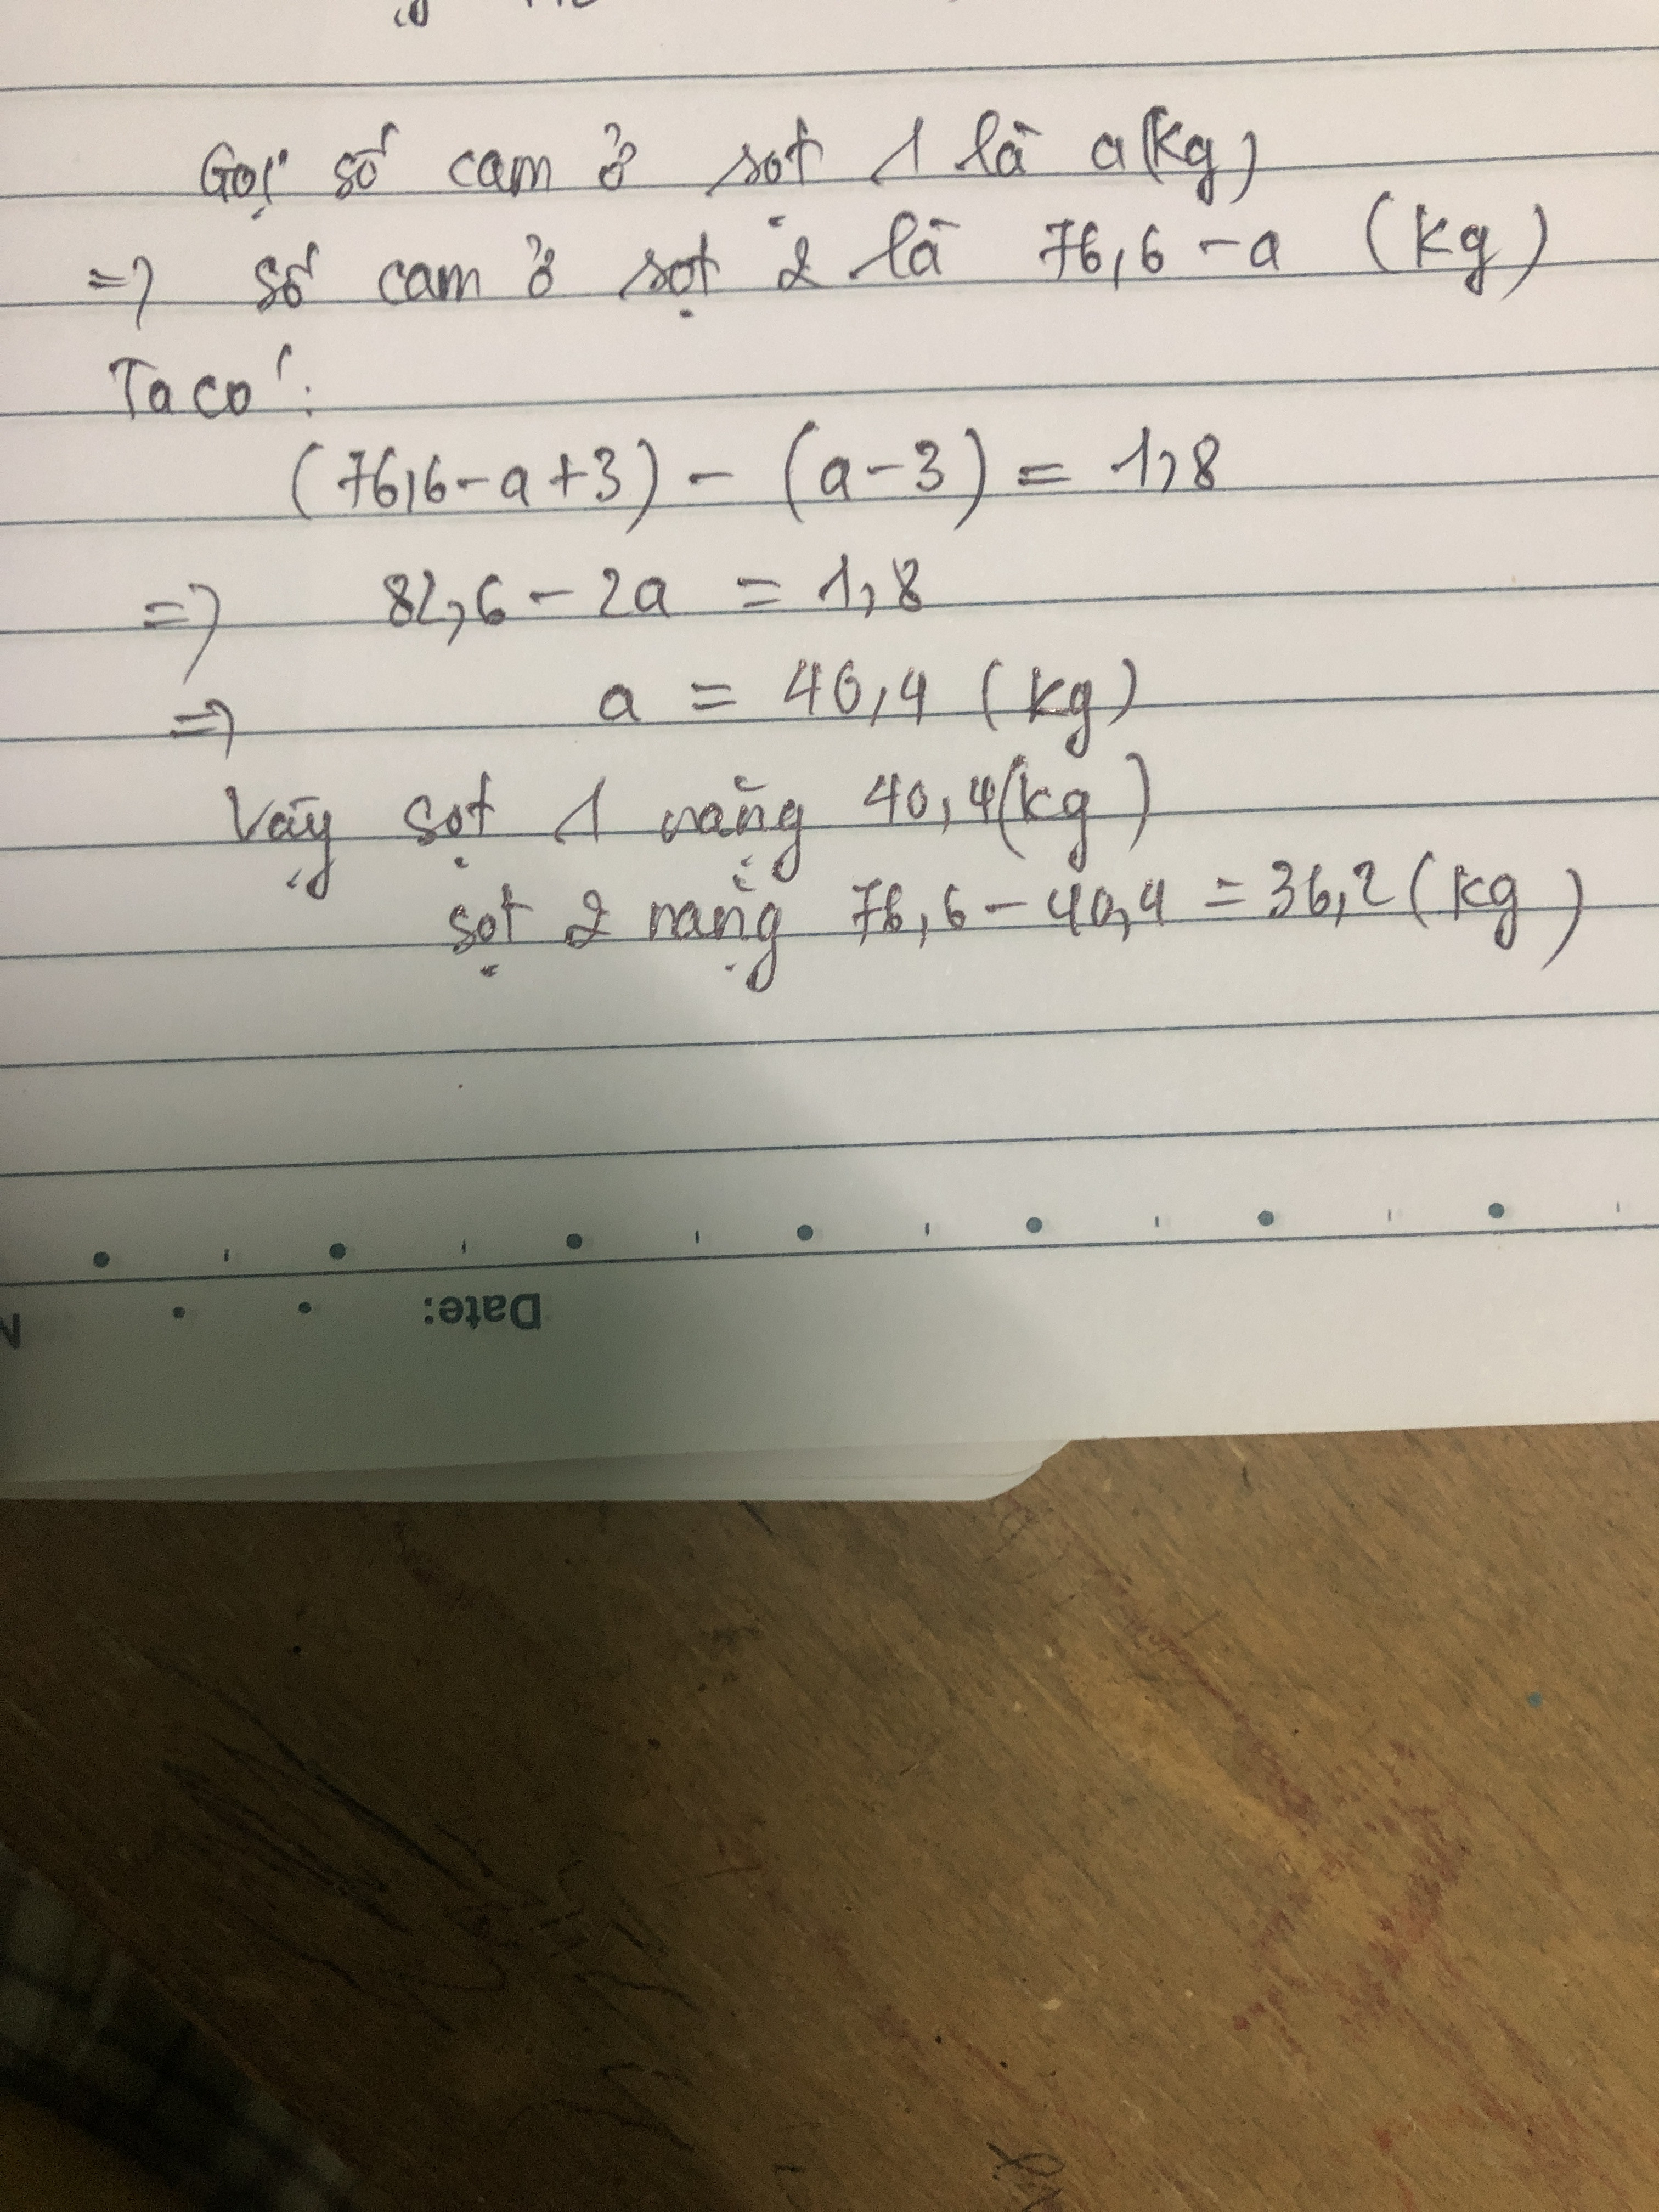 Gọi số cam ở sọt 1 là a(kg)
=> số cam ở sọt 2 là 76,6 - a (kg)
Ta có:
(76,6 - a + 3) - (a - 3) = 1,8
=> 82,6 - 2a = 1,8
=> a = 40,4 (kg)
Vậy sọt 1 nặng 40,4(kg)
sọt 2 nặng 76,6 - 40,4 = 36,2 (kg)
Date: